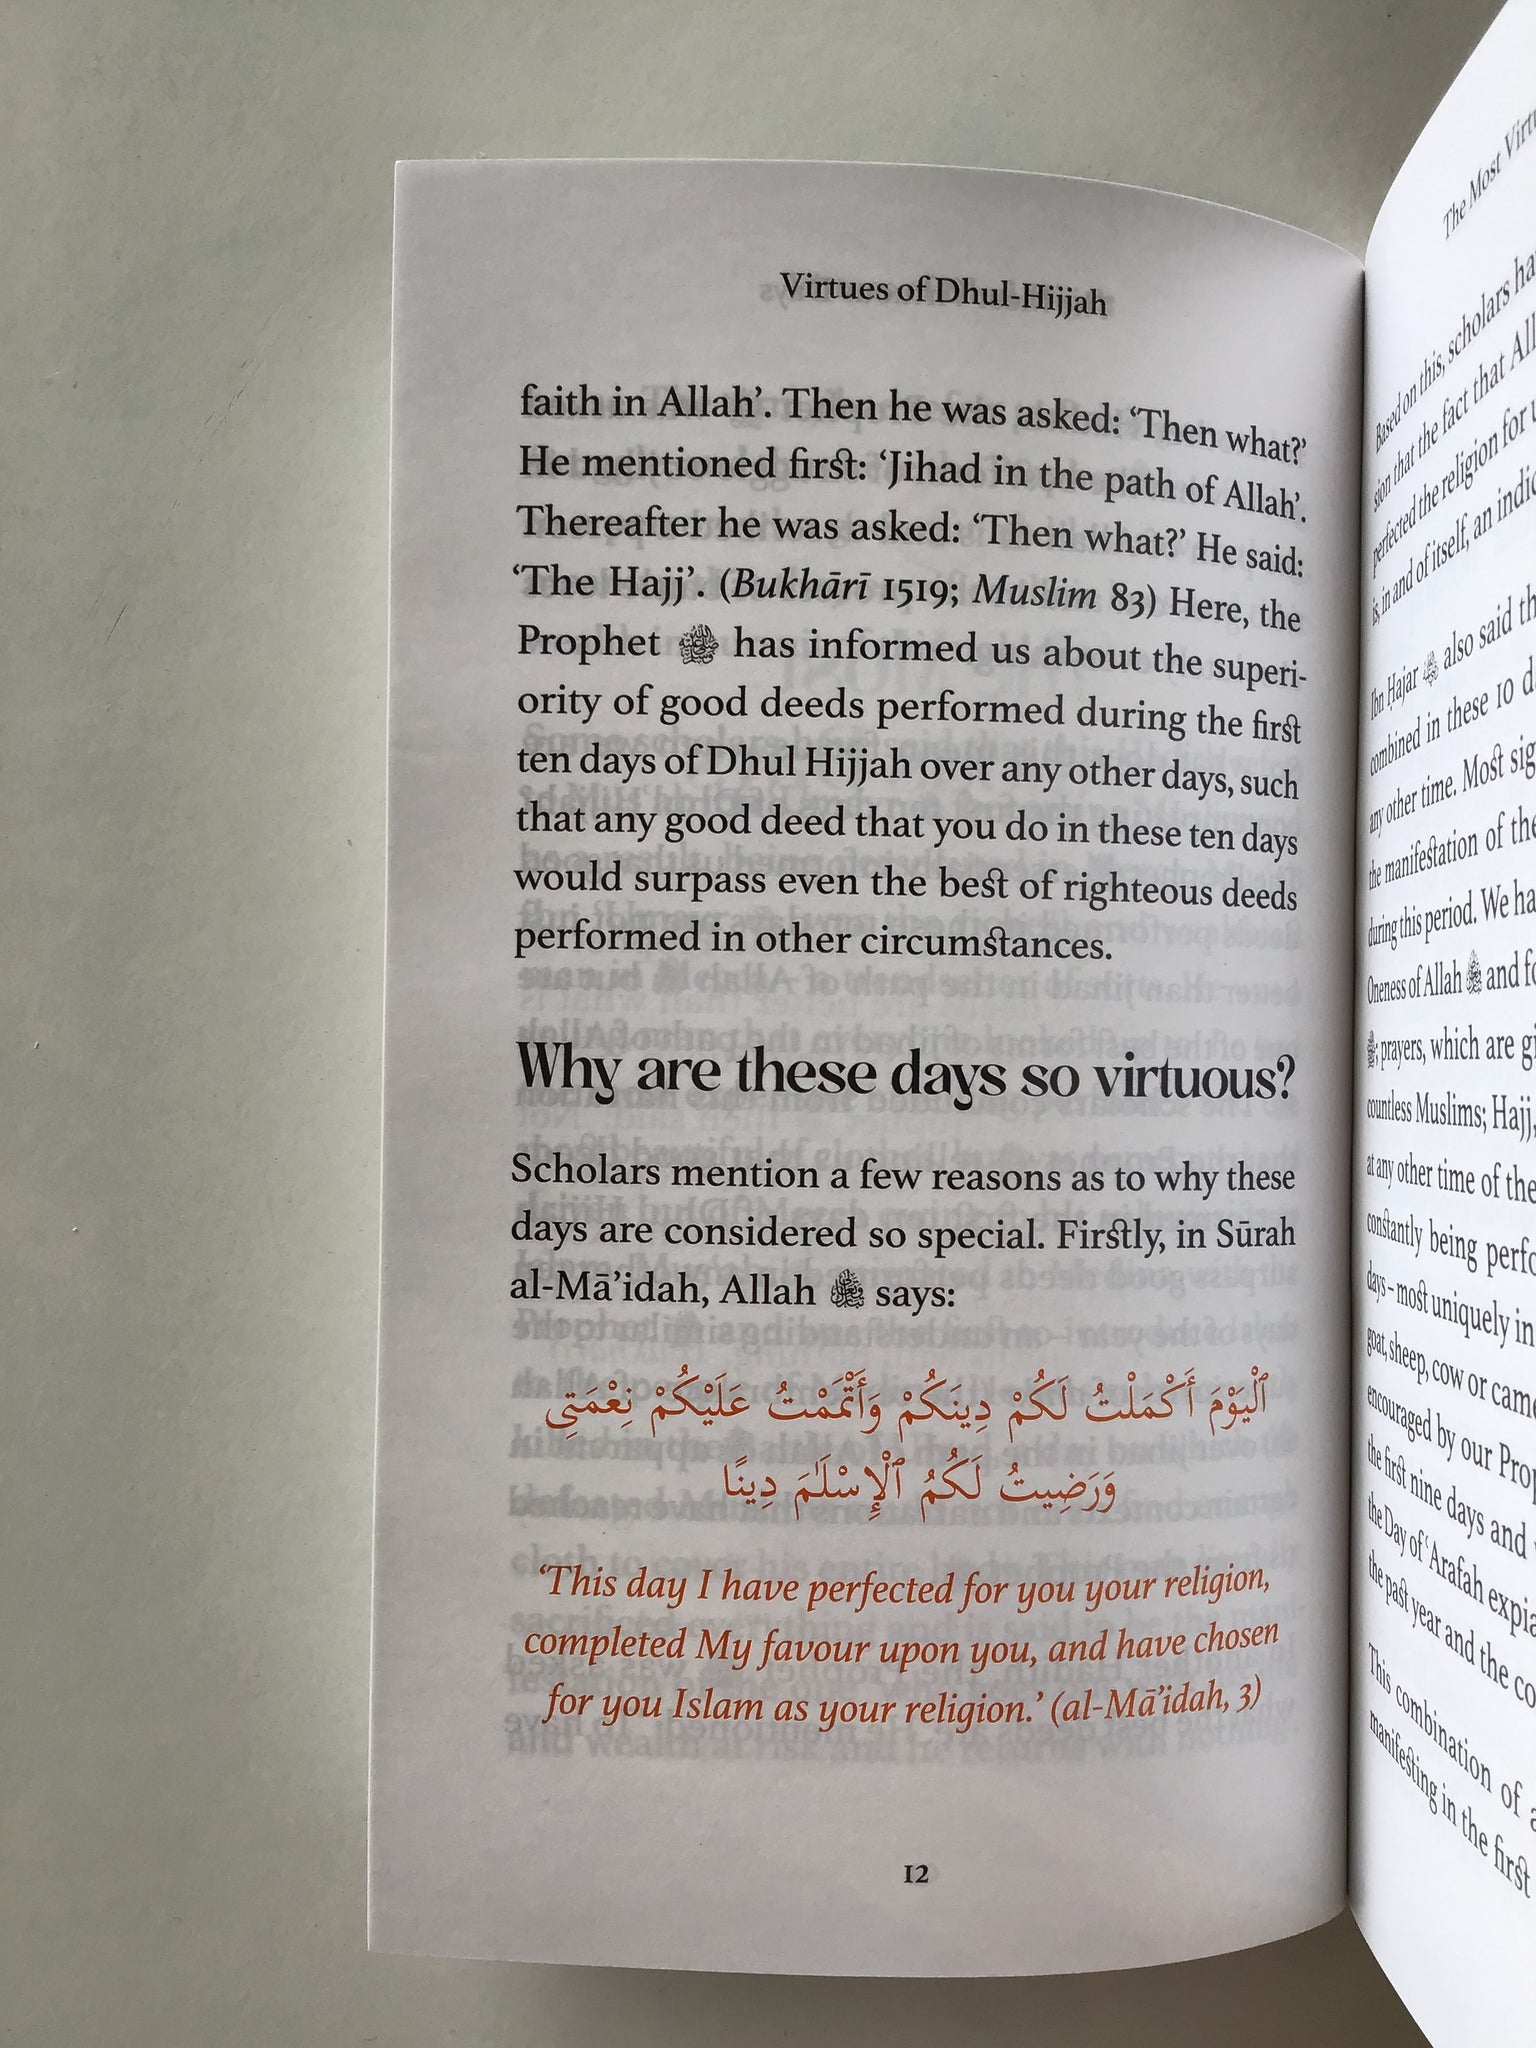 Virtues of Dhul-Hijjah
faith in Allah’. Then he was asked: ‘Then what?’
He mentioned first: ‘Jihad in the path of Allah’.
Thereafter he was asked: ‘Then what?’ He said:
‘The Hajj’. (Bukhārī 1519; Muslim 83) Here, the
Prophet ﷺ has informed us about the superi-
ority of good deeds performed during the first
ten days of Dhul Hijjah over any other days, such
that any good deed that you do in these ten days
would surpass even the best of righteous deeds
performed in other circumstances.
Why are these days so virtuous?
Scholars mention a few reasons as to why these
days are considered so special. Firstly, in Sūrah
al-Mā’idah, Allah says:
ٱلْيَوْمَ أَكْمَلْتُ لَكُمْ دِينَكُمْ وَأَتْمَمْتُ عَلَيْكُمْ نِعْمَتِى
وَرَضِيتُ لَكُمُ ٱلْإِسْلَـٰمَ دِينًا
‘This day I have perfected for you your religion,
completed My favour upon you, and have chosen
for you Islam as your religion.’ (al-Mā’idah, 3)
12
The Most
Based on this, scholars
sion that the fact that
perfected the religion for
is, in and of itself, an
Ibn Ḥajar also said
combined in these 10
any other time. Most
the manifestation of the
during this period. We
Oneness of Allah and
; prayers, which are
countless Muslims; Hajj,
at any other time of the
constantly being
days – most uniquely in
goat, sheep, cow or
encouraged by our
the first nine days and
the Day of ‘Arafah
the past year and the
This combination of
manifesting in the first